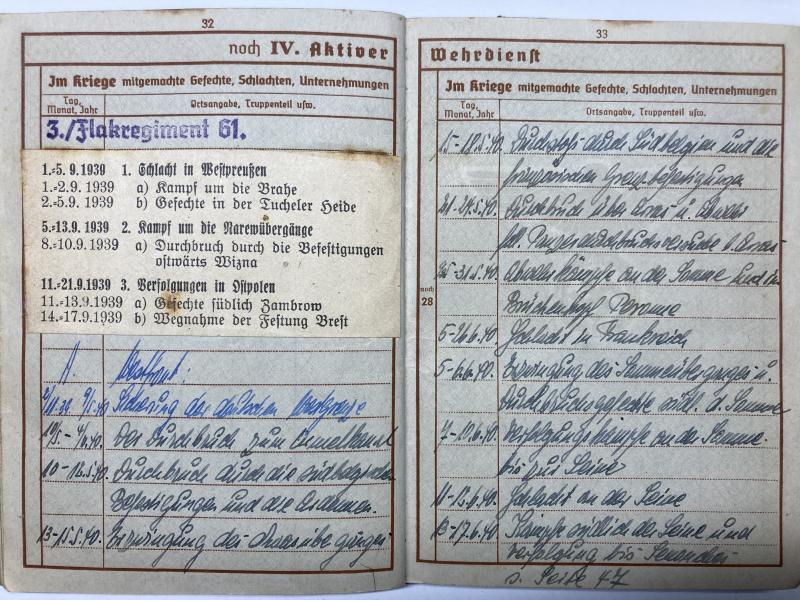 32
noch IV. Aktiver
Im Kriege mitgemachte Gefechte, Schlachten, Unternehmungen
Tag, Monat, Jahr
Ortsangabe, Truppenteil usw.
3./Flakregiment 61.
1.=5. 9.1939 1. Schlacht in Westpreußen
1.-2.9. 1939 a) Kampf um die Brahe
2.-5.9. 1939 b) Gefechte in der Tucheler Heide
5.=13.9.1939 2. Kampf um die Narewübergänge
8.=10.9.1939 a) Durchbruch durch die Befestigungen
ostwärts Wizna
11.=21.9.1939 3. Verfolgungen in Ostpolen
11.=13.9.1939 a) Gefechte südlich Zambrow
14.=17.9.1939 b) Wegnahme der Festung Brest
Westfront:
Sicherung der deutschen Westgrenze
Der Durchbruch zum Ärmelkanal
10-12.5.40. Durchbruch durch die südbelgischen
Befestigungen und die Ardennen.
13-15.5.40. Erzwingung der Maasübergänge
33
Wehrdienst
Im Kriege mitgemachte Gefechte, Schlachten, Unternehmungen
Tag, Monat, Jahr
Ortsangabe, Truppenteil usw.
Durchstoß durch Südbelgien und die
französischen Grenzbefestigungen
21-24.5.40. Durchbruch über Arras u. Abwehr
25-31.5.40. Abwehrkämpfe an der Somme und im
noch
28
Brückenkopf Peronne
5-26.6.40. Schlacht in Frankreich
5-6.6.40. Erzwingung des Sommeüberganges u.
Durchbruchsgefechte südl. d. Somme
7-10.6.40. Verfolgungskämpfe an der Somme
bis zur Seine
11-12.6.40. Schlacht an der Seine
13-17.6.40. Kämpfe südlich der Seine und
Verfolgung bis
s. Seite 47